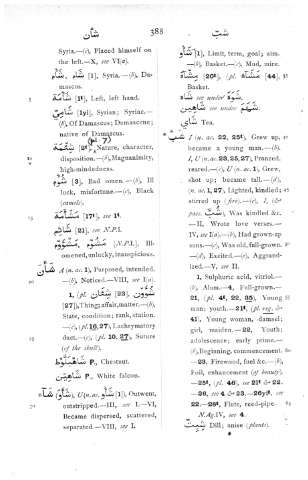 شأن
388
شب
Syria.—(c), Placed himself on
the left.—X, see VI(a).
شَأْم, شَام [1], Syria.—(b), Da-
mascus.
شَأْمَة [1t], Left, left hand.
شَامِيّ [1yi], Syrian; Syriac.—
(b), Of Damascus; Damascene;
native of Damascus.
(pl. 7)
[2t], Nature, character,
disposition.—(b), Magnanimity,
high-mindedness.
شُؤْم [3], Bad omen.—(b), Ill
luck, misfortune.—(c), Black
(camels).
مَشْأَمَة [17t], see 1t.
[21], see N.P.I.
[N.P.I.], Ill-
omened, unlucky, inauspicious.
شَأَنَ A (n. ac. 1), Purposed, intended.
—(b), Noticed.—VIII, see I(a).
1, (pl. [23], شُؤُون
[27]), Thing; affair, matter.—(b),
State, condition; rank, station.
—(c), (pl. 16, 27), Lachrymatory
duct.—(c), (pl. 10, 27), Suture
(of the skull).
P., Chestnut.
شَاهِين P., White falcon.
U (n. ac. [1]), Outwent,
outstripped.—III, see I.—VI,
Became dispersed, scattered,
separated.—VIII, see I.
[1], Limit, term, goal; aim.
—(b), Basket.—(c), Mud, mire.
[20t], (pl. [44],
Basket.
see under
شَاهِين see under
شَاي Tea.
شَبَّ I (n. ac. 22, 25t), Grew up,
became a young man.—(b),
I, U (n. ac. 23, 25, 27), Pranced,
reared.—(c), U (n. ac. 1), Grew,
shot up; became tall.—(d),
(n. ac. 1, 27), Lighted, kindled;
stirred up (fire).—(e), I, (&
pass. شُبَّ), Was kindled &c.
—II, Wrote love verses.—
IV, see I(a).—(b), Had grown-up
sons.—(c), Was old, full-grown.
—(d), Excited.—(e), Aggrand-
ized.—V, see II.
1, Sulphuric acid, vitriol.—
(b), Alum.—4, Full-grown.—
21, (pl. 4t, 22, 35), Young
man; youth.—21t, (pl. reg. &
41), Young woman, damsel;
girl, maiden.—22, Youth;
adolescence; early prime.—
(b), Beginning, commencement.
—23, Firewood, fuel &c.—(b),
Foil, enhancement (of beauty).
—25t, (pl. 46), see 21t & 22.
N.Ag.IV, see 4.
Dill; anise (plants).